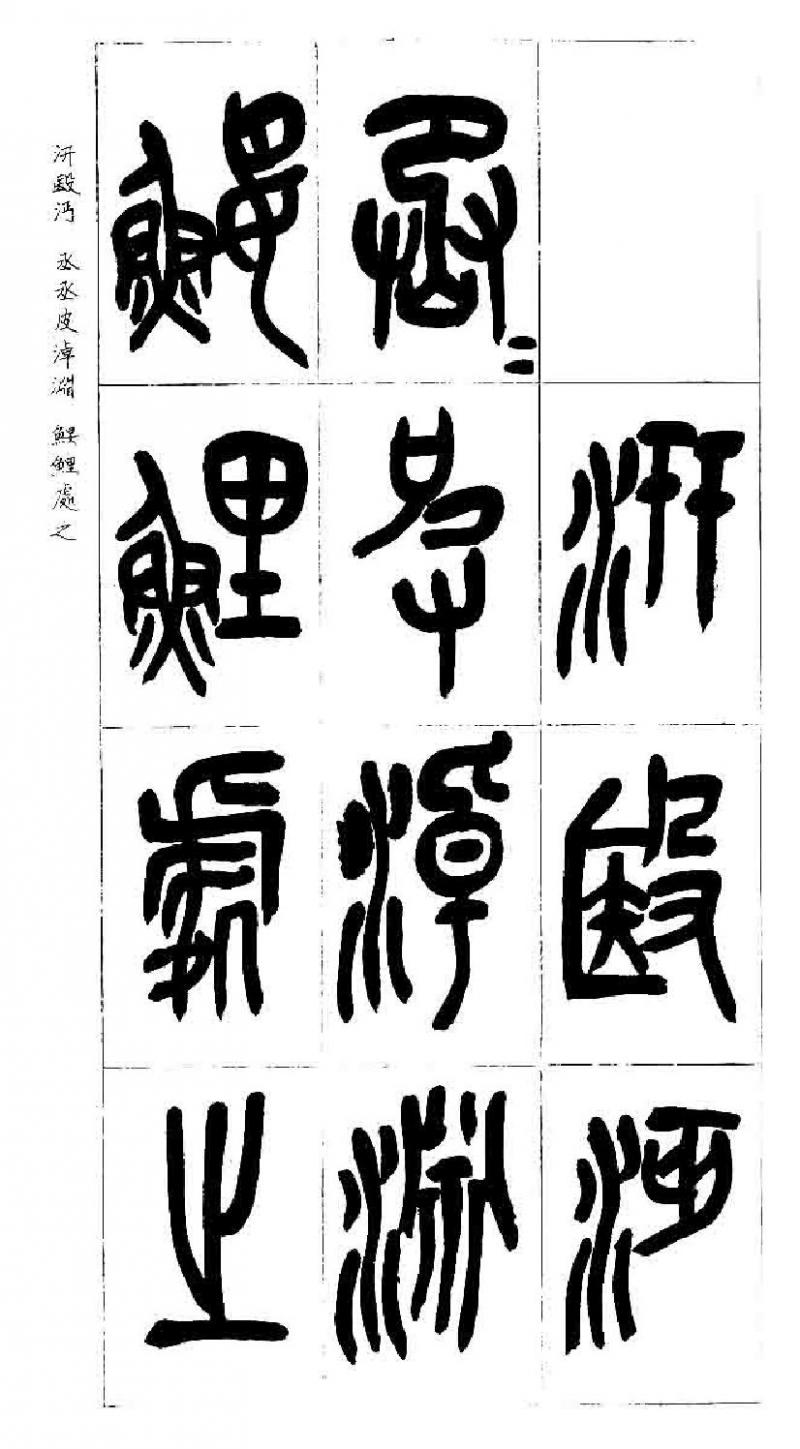 汧殹沔
丞＝皮淖淵
鰋鯉處之
汧殹沔 丞丞皮淖淵 鰋鯉處之